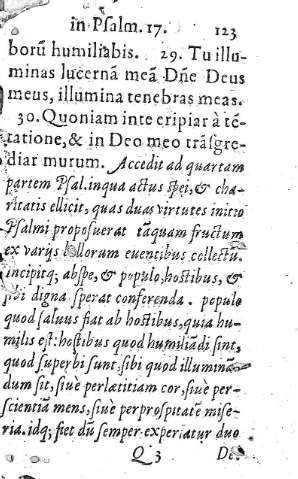 in Psalm. 17. 123
borũ humiliabis. 29. Tu illu-
minas lucernã meã Dñe Deus
meus, illumina tenebras meas.
30. Quoniam in te eripiar à tẽ-
tatione, & in Deo meo trãsgre-
diar murum. Accedit ad quartam
partem Psal. in qua actus spei, & cha-
ritatis ellicit, quas duas virtutes initio
Psalmi proposuerat tãquam fructum
ex varijs bellorum euentibus collectũ.
Incipitq; ab spe, & populo, hostibus, &
sibi digna sperat conferenda. populo
quod saluus fiat ab hostibus, quia hu-
milis est: hostibus quod humiliãdi sint,
quod superbi sunt, sibi quod illuminã-
dum sit, siuè per lætitiam cor, siuè per-
scientiam mens, siuè per prospitatẽ mise-
ria. idq; fiet dũ semper experiatur duo
Q 3 De.